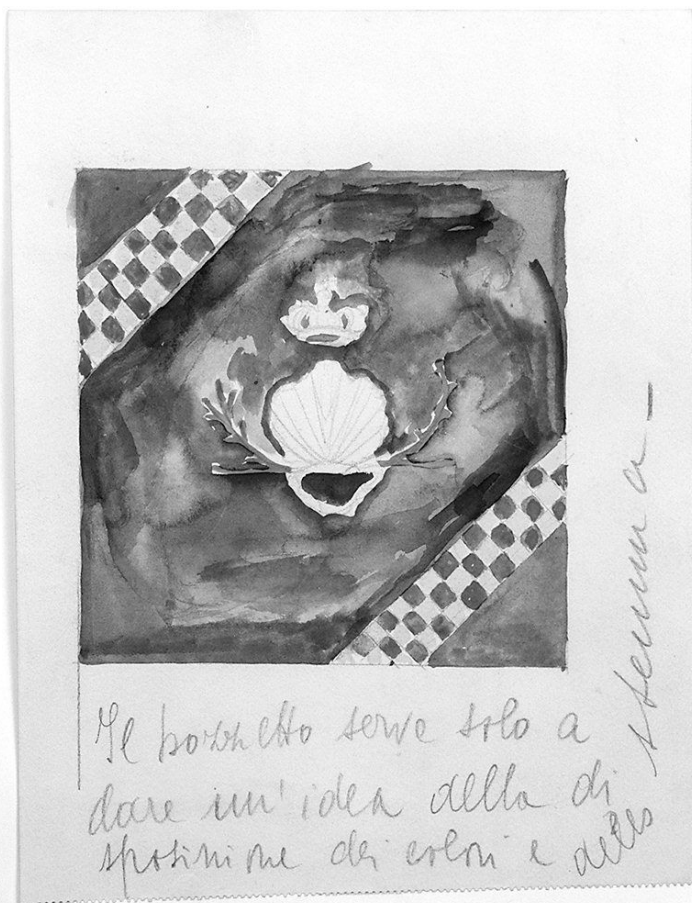 Il bozzetto serve solo a
dare un' idea della di
sposizione dei colori e dello
stemma -